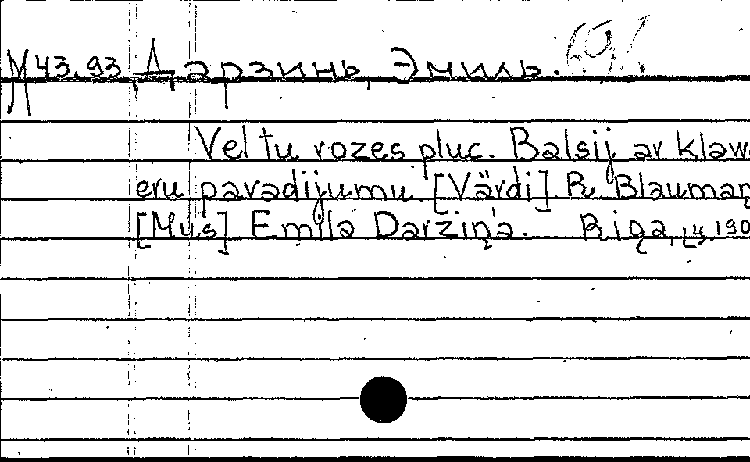 М43.93 Дарзинь, Эмиль. 69/1
Vel tu rozes pluc. Balsij ar klaw
eru pavadijumu. [Värdi] R. Blauman
[Mus] Emila Darziņa. Riga, Lg. 190